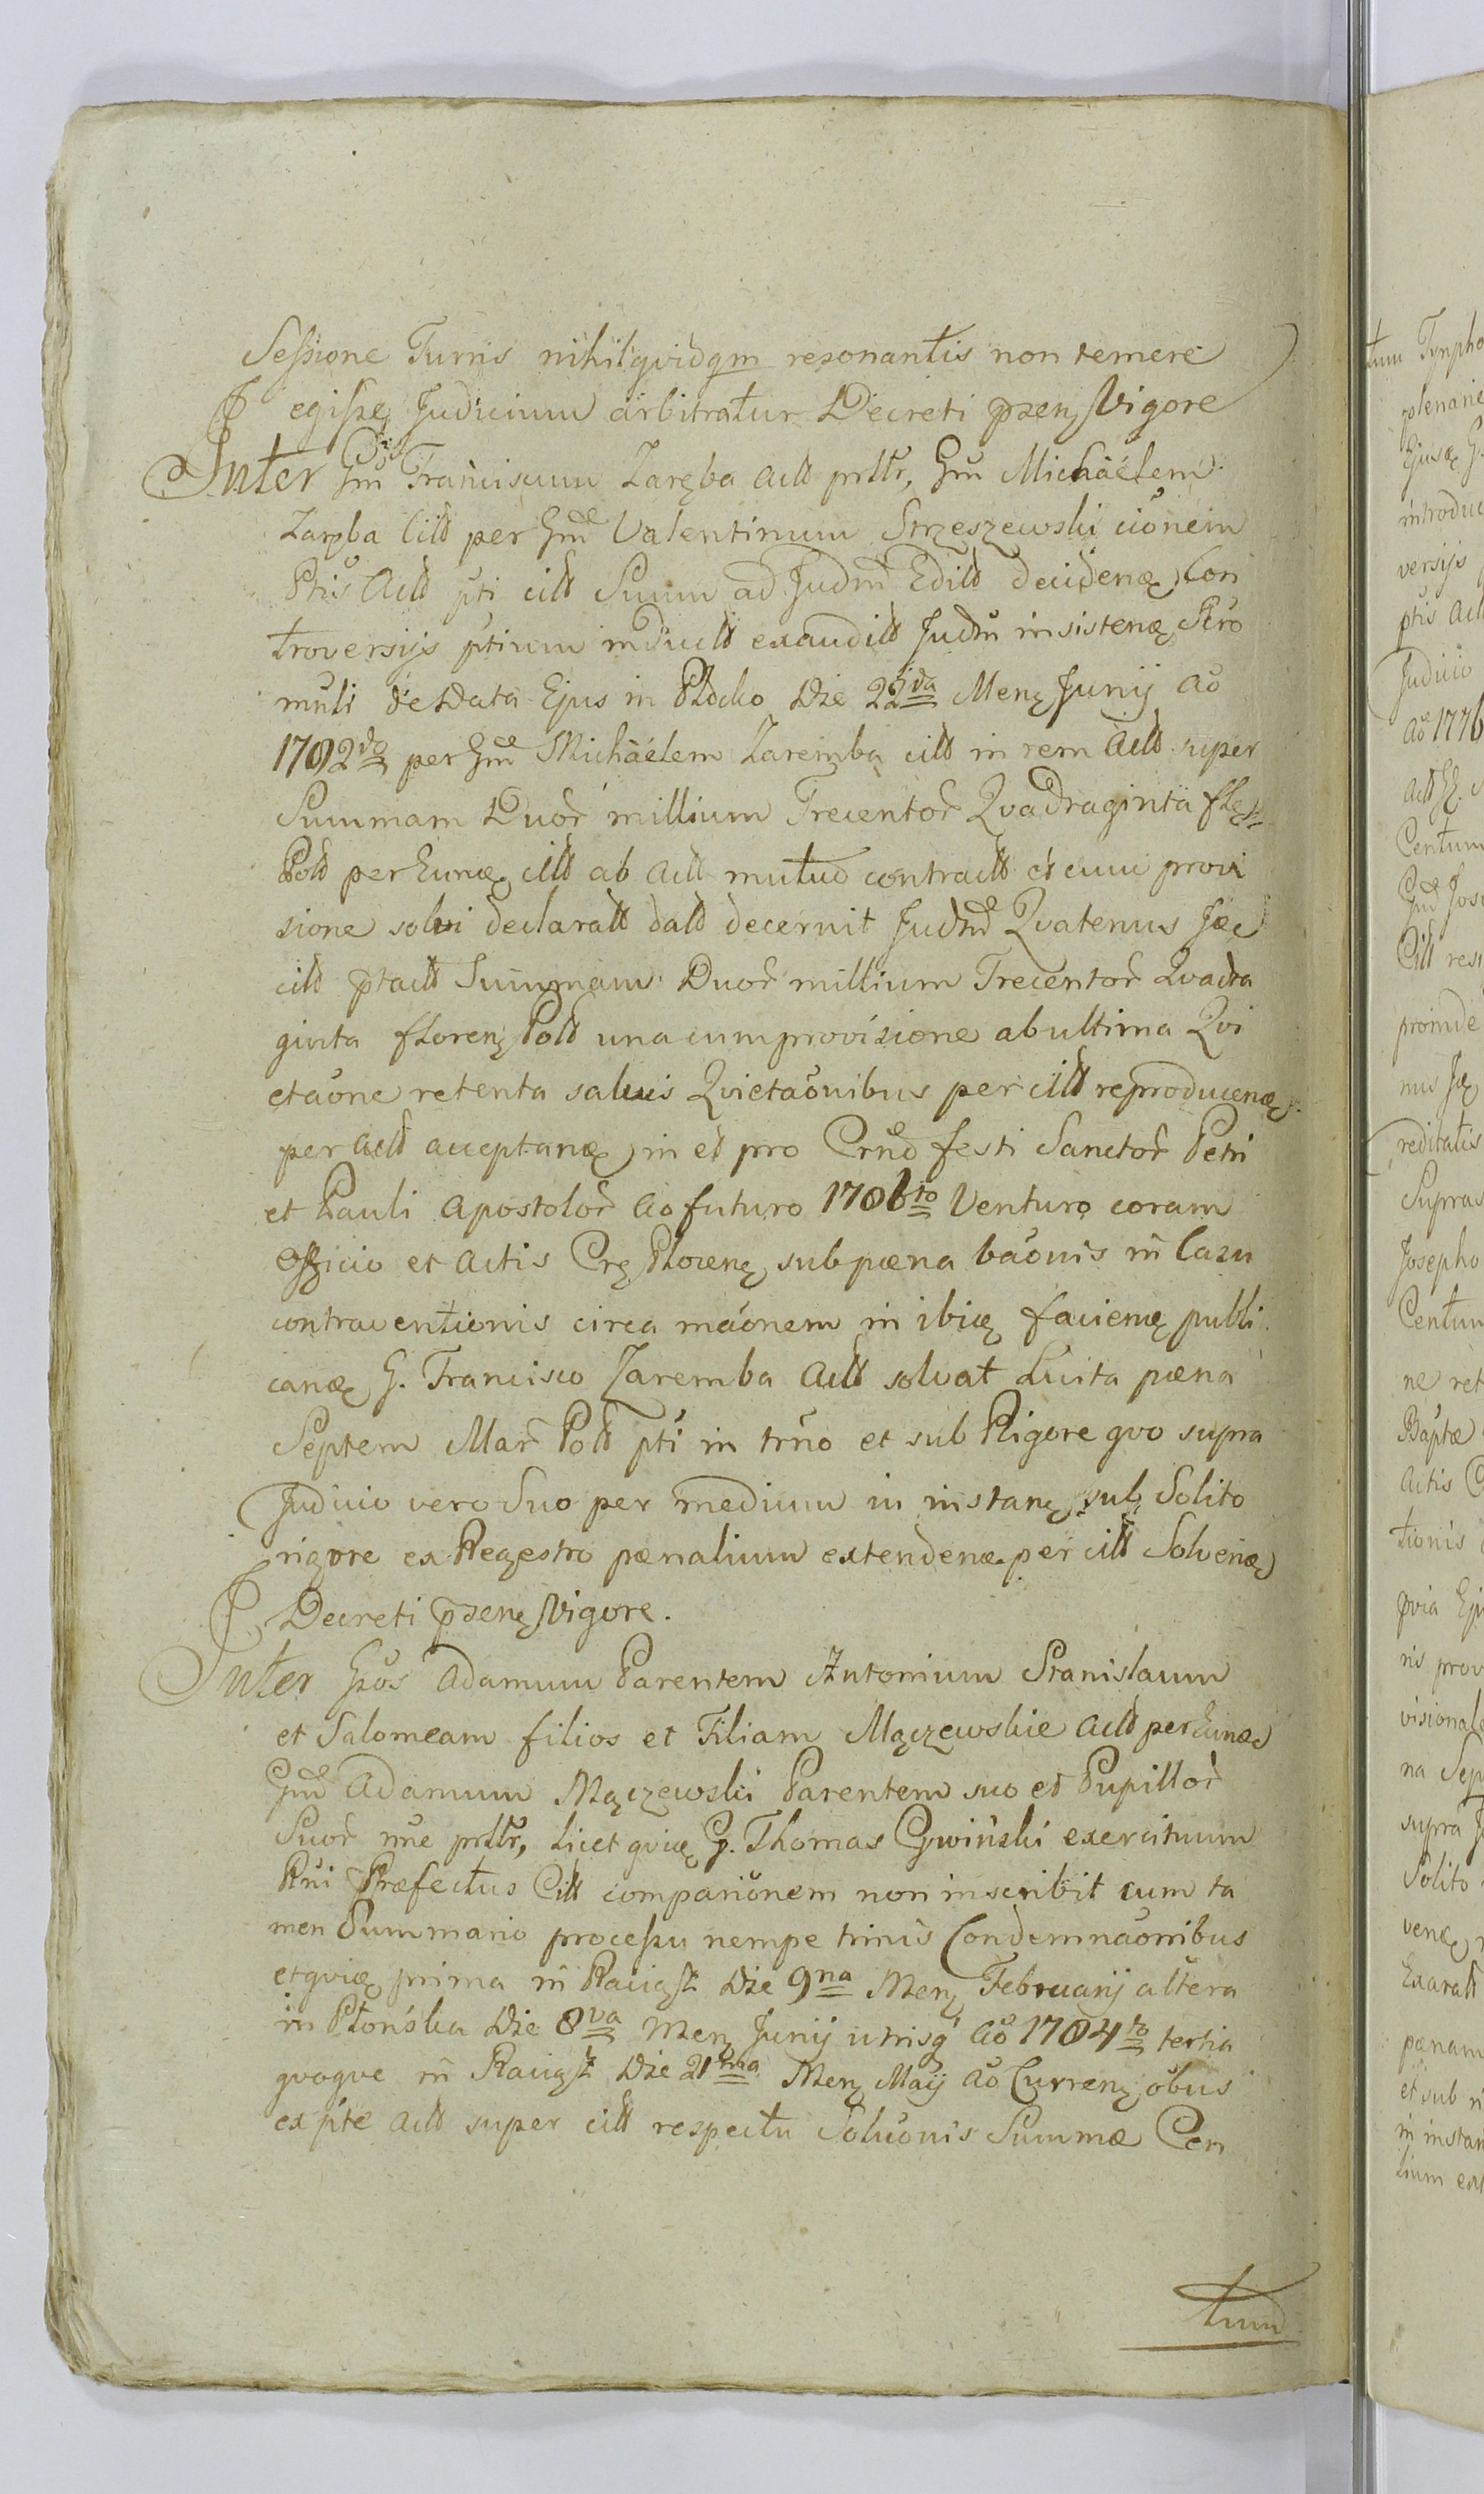 Sessione Turris nihil qvidqm resonantis non temere
egisse Judicium arbitratur Decreti pzens Vigore
Inter Gm Franciscum Zaręba Actt prttr, Gm Michaëlem
Zaręba Citt per Gm Valentinum Strzeszewski cionem
Ptis Actt pti citt Suum ad Judm Editt decidenæ Con
troversijs ptium inducttt exauditt Judm insistenæ Scro
muli de Data Ejus in Płocko Die 22da Mens Junij Ao
1782do per Gm Michaëlem Zaremba citt in rem Actt super
Summam Duor millium Trecentor Qvadraginta flens
Poltt per Eunæ citt ab Actt mutuo contractt et cum provi
sione solvi declaratt datt decernit Judm Qvatenus Jdæ
citt ptactt Summam Duor millium Trecentor Qvadra
ginta florens Poltt una cum provisione ab ultima Qvi
etaone retenta salvis Qvietaonibus per citt reproducenæ
per actt acceptanæ in et pro Crno festi Sanctor Petri
et Pauli Apostolor Ao futuro 1786to Venturo coram
Officio et Actis Crs Plocens sub pæna baonis in Casu
contraventionis circa maonem in ibiæ facienæ publi
canæ G. Francisco Zaremba Actt solvat Luita pæna
Septem Mar Poltt pti in trno et sub Rigore qvo supra
Judicio vero Suo per medium in instans sub Solito
rigore ex Regestro pænalium extendenæ per citt Solvenæ
Decreti pzens Vigore.
Inter Gsos Adamum Parentem Antonium Stanislaum
et Salomeam filios et Filiam Mączewskie Actt per Eunæ
Gm Adamum Mączewski Parentem suo et Pupillor
Suor nne prttr, licet qviæ G. Thomas Gwiński exercituum
Rni Præfectus Citt comparionem non inscribit cum ta
men Summario processu nempe trinis Condemnaonibus
et qviæ prima in Raciąż Die 9na Mens Februarij altera
in Płońsku Die 8va Mens Junij utrisq Ao 1784to tertia
qvoqve in Raciąż Die 21ma Mens Maij Ao Currens obus
ex pte actt super citt respectu Soluonis Summæ Cen
tum